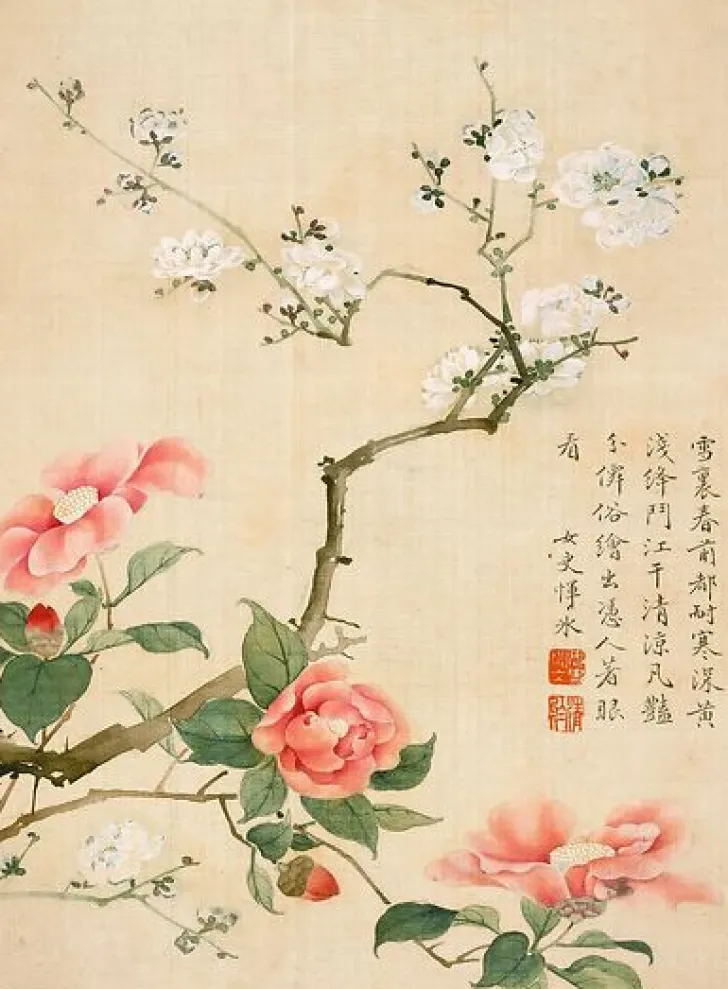 雪裏春前都耐寒深黄
淺絳鬥江干清涼凡豔
儕俗繪出憑人著眼
看
女史惲冰